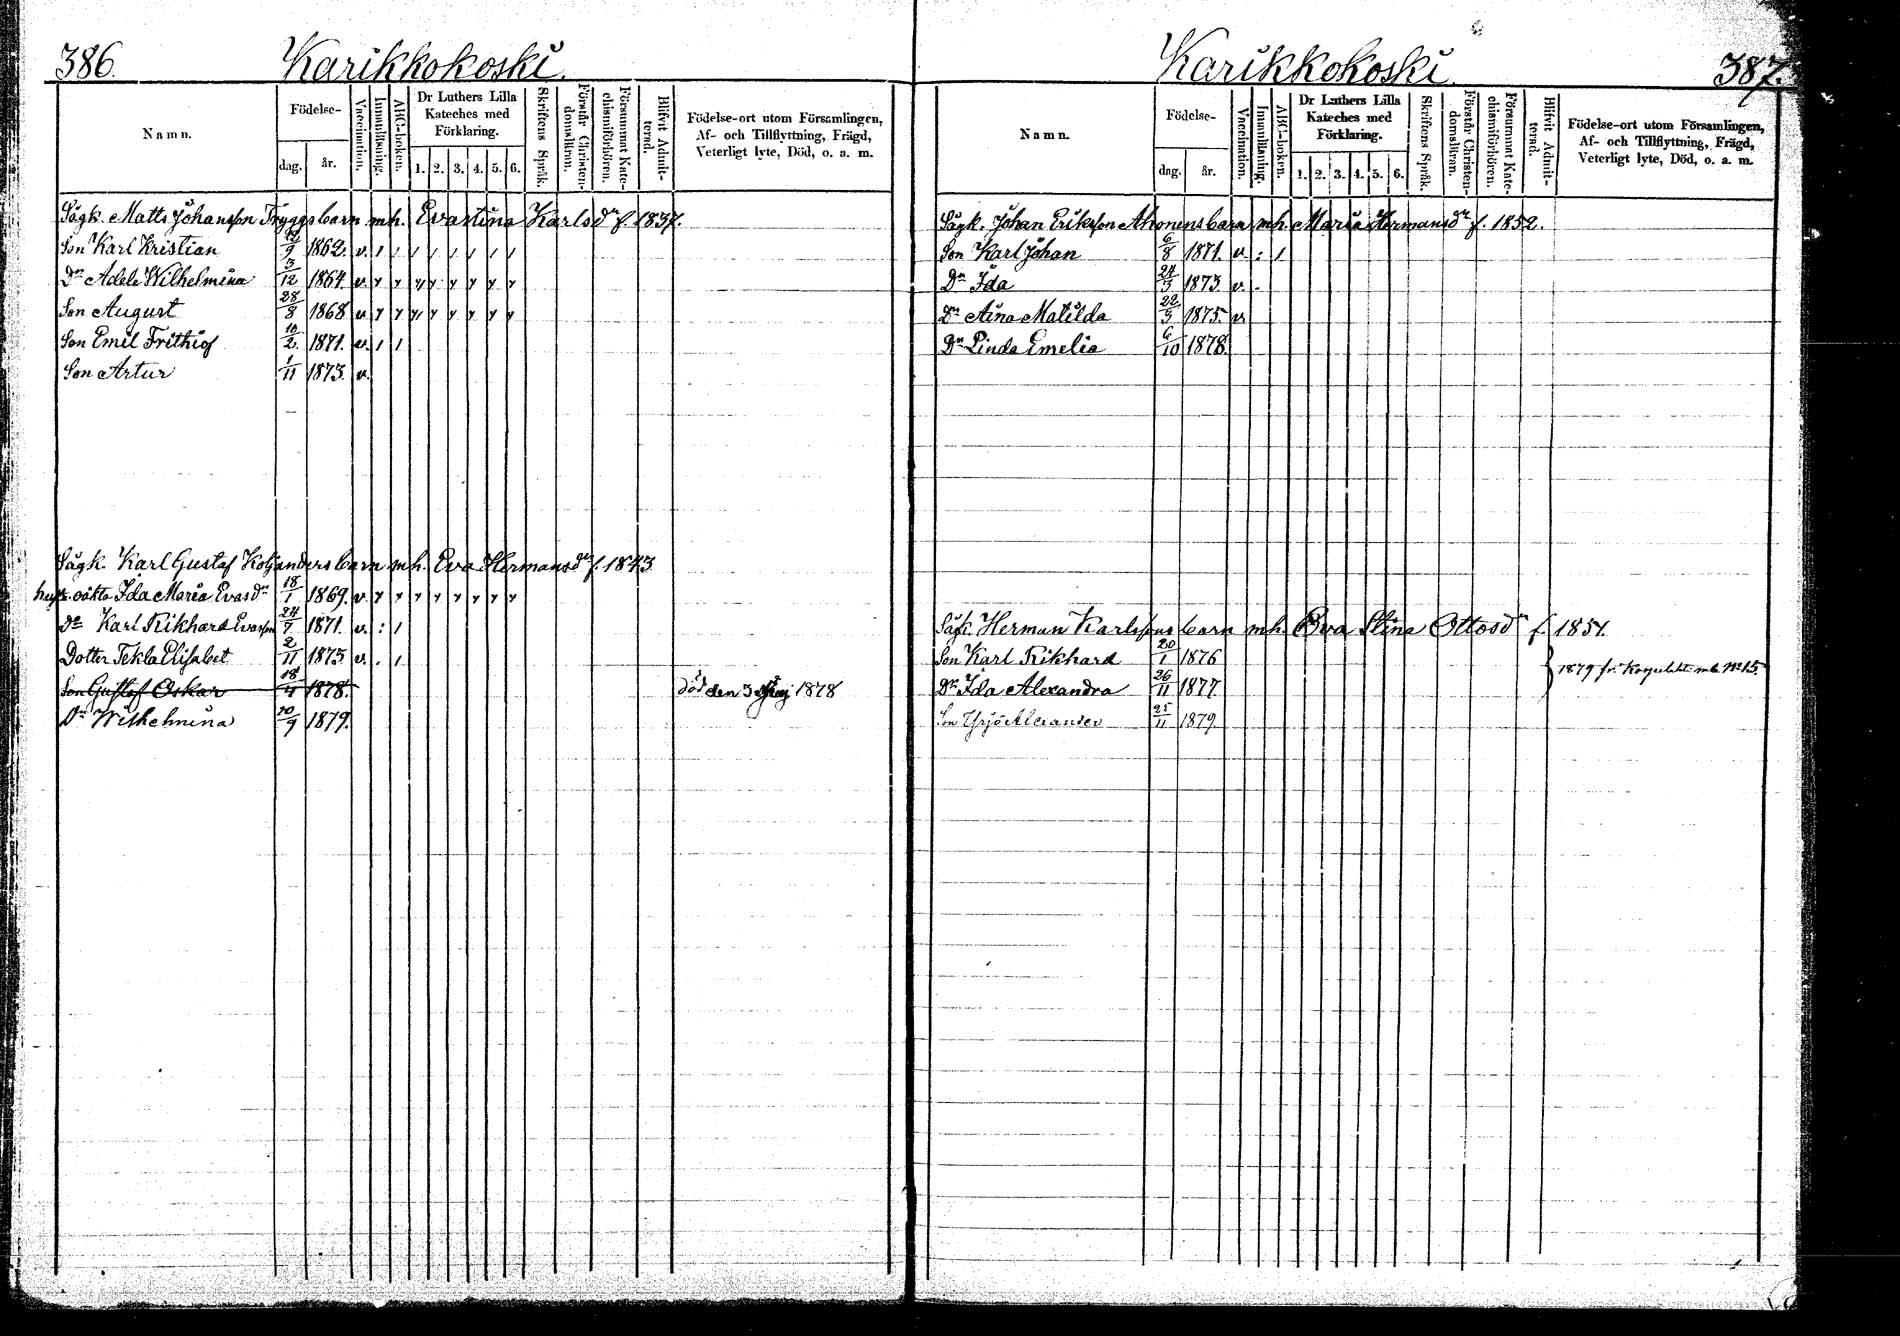 386. Karikkokoski.
Namn.
Födelse-
dag. år.
Vaccination.
Innanläsning.
ABC-boken.
Dr Luthers Lilla
Kateches med
Förklaring.
1. 2. 3. 4. 5. 6.
Skriftens Språk.
Förstår Christen-
domsläran.
Försummat Kate-
chismiförhören.
Blifvit Admit-
terad.
Födelse-ort utom Församlingen,
Af- och Tillflyttning, Frägd,
Veterligt lyte, Död, o. a. m.
Sågk. Matts Johansson Tryggs barn m h. Evastina Karlsdr f. 1837.
Son Karl Kristian 12/9 1862. v.
Dr Adele Wilhelmina 3/12 1864. v.
Son August 28/8 1868 v.
Son Emil Frithiof 10/2 1871. v.
Son Artur 1/11 1873. v.
Sågk. Karl Gustaf Koljanders barn m h. Eva Hermansdr f. 1843
hust. oäkta Ida Maria Evasdr 18/1 1869. v.
Do Karl Rikhard Evasson 24/7 1871. v.
Dotter Tekla Elisabet 2/11 1875 v.
Son Gustaf Oskar 18/4 1878. död den 3 Maj 1878
Dr Wilhelmina 20/9 1879.
Karikkokoski. 387.
Namn.
Födelse-
dag. år.
Vaccination.
Innanläsning.
ABC-boken.
Dr Luthers Lilla
Kateches med
Förklaring.
1. 2. 3. 4. 5. 6.
Skriftens Språk.
Förstår Christen-
domsläran.
Försummat Kate-
chismiförhören.
Blifvit Admit-
terad.
Födelse-ort utom Församlingen,
Af- och Tillflyttning, Frägd,
Veterligt lyte, Död, o. a. m.
Sågk. Johan Eriksson Ahonens barn m h. Maria Hermansdr f. 1852.
Son Karl Johan 6/8 1871. v.
Dr Ida 24/3 1873 v.
Dr Aina Matilda 22/5 1875. v
Dr Linda Emelia 6/10 1878.
Sågk. Herman Karlssons barn m h. Eva Stina Ottosdr f. 1851.
Son Karl Rikhard 20/1 1876
1879 fr.
Dr Ida Alexandra 26/11 1877.
Son Yrjö Alexander 25/11 1879.